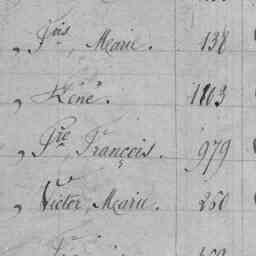 „ Fois, Marie. 138
„ Réné. 1103
„ Pre, François. 979
„ Victor, Marie. 250